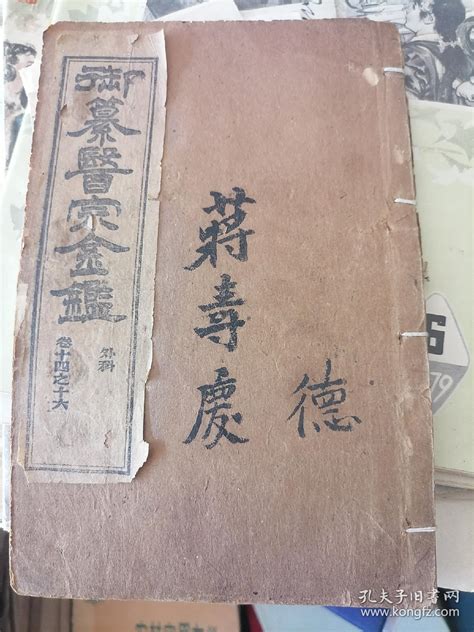 御纂醫宗金鑑
外科
卷十四之十六
蔣壽慶
德
79
孔夫子旧书网
www.kongfz.com